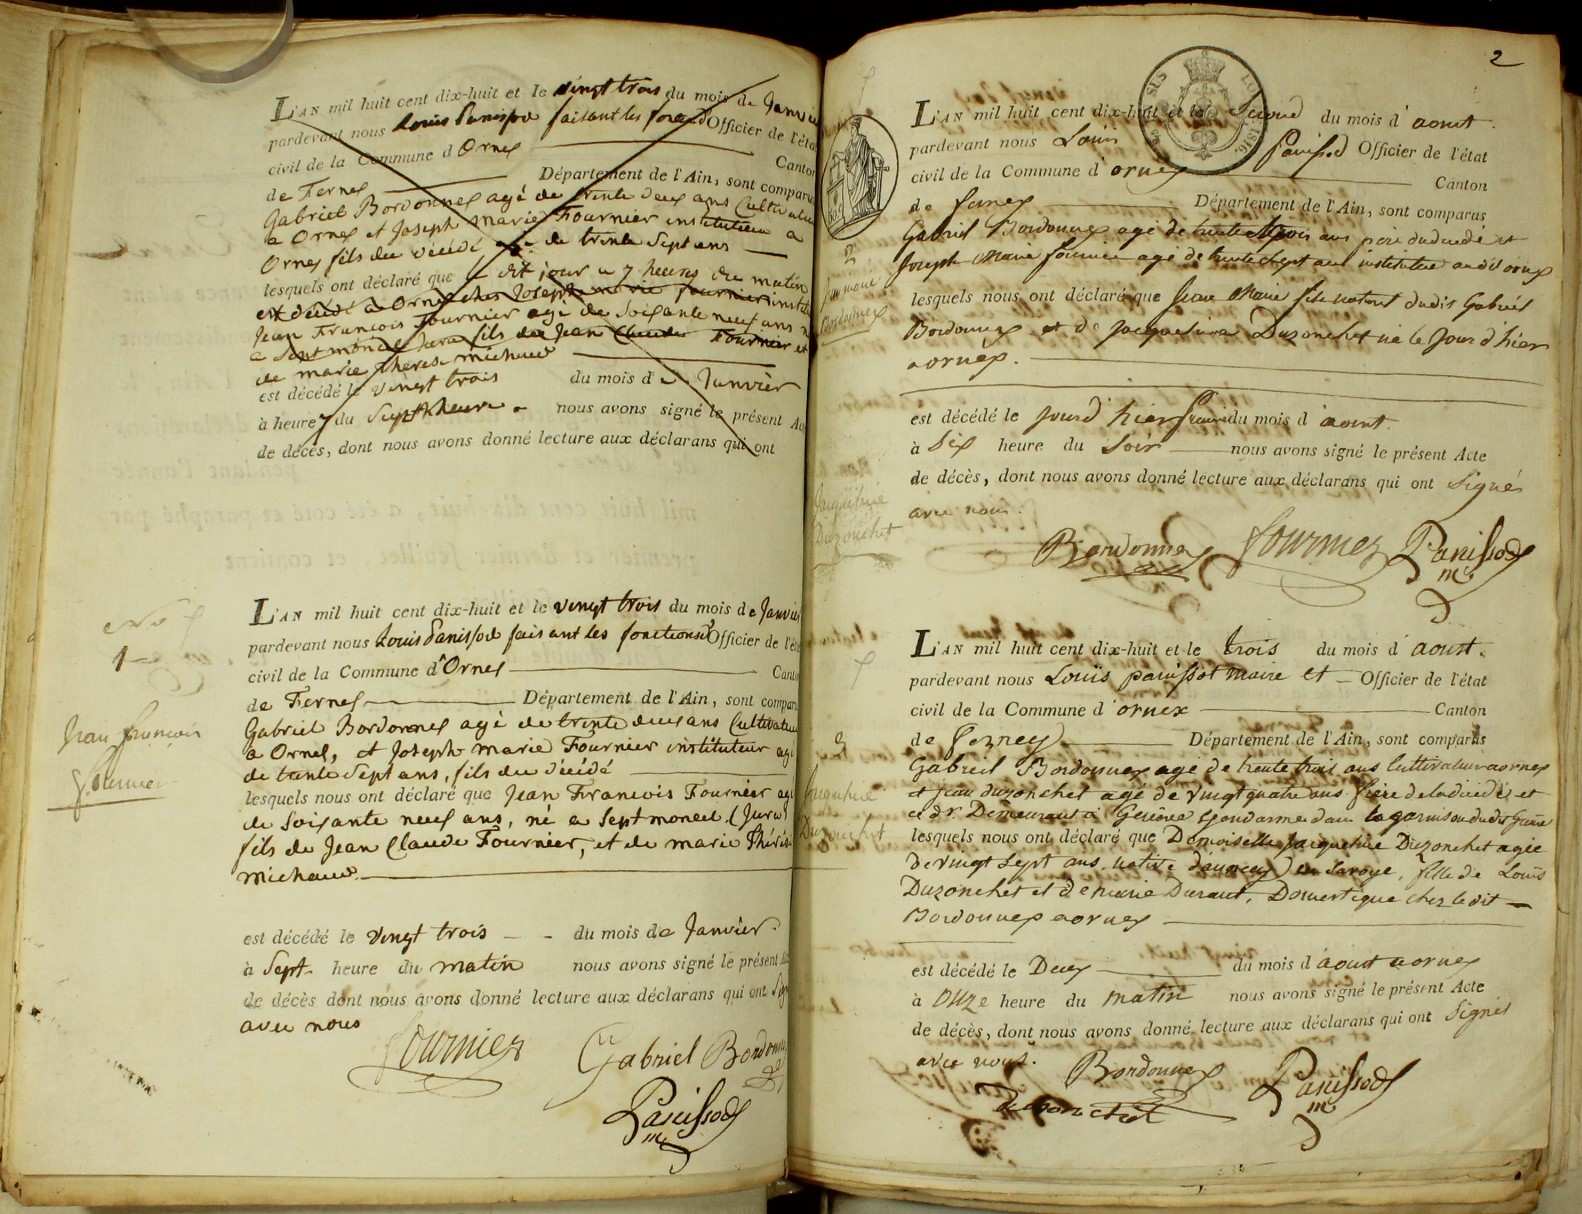 L'AN mil huit cent dix-huit et le vingt trois du mois de Janvier
pardevant nous Louis Panissod faisant les fonc d' Officier de l'état
civil de la Commune d'Ornex Canton
de Fernex Département de l'Ain, sont comparus
Gabriel Bordonnex agé de trente deux ans Cultivateur
a Ornex et Joseph marie Fournier instituteur a
Ornex fils du décédé agé de trente Sept ans
lesquels nous ont déclaré que le dit jour a 7 heures du matin
est décédé a Ornex chez Joseph marie fournier instit
Jean Francois Fournier agé de Soixante neuf ans n
a Septmoncel Jura fils de Jean Claude Fournier et
de marie Therese michaud
est décédé le vingt trois du mois d Janvier
à heure 7 du Sept heure nous avons signé le présent Ac
de décès, dont nous avons donné lecture aux déclarans qui ont
No
1
Jean francois
fournier
L'AN mil huit cent dix-huit et le vingt trois du mois de Janvier
pardevant nous Louis Panissod faisant les fonctions d' Officier de l'éta
civil de la Commune d'Ornex Canton
de Fernex Département de l'Ain, sont compar
Gabriel Bordonnex agé de trente deux ans Cultivateur
a Ornex, et Joseph marie Fournier instituteur agé
de trente Sept ans, fils du décédé
lesquels nous ont déclaré que Jean Francois Fournier agé
de Soixante neuf ans, né a Septmoncel (Jura)
fils de Jean Claude Fournier, et de marie Thérèse
michaud
est décédé le vingt trois du mois de Janvier.
à Sept heure du matin nous avons signé le présent Ac
de décès dont nous avons donné lecture aux déclarans qui ont Sig
avec nous
Fournier Gabriel Bordonnex
Panissod
m
2
L'AN mil huit cent dix-huit et le Second du mois d'aout.
pardevant nous Louis Panissod Officier de l'état
civil de la Commune d'ornex Canton
de fernex Département de l'Ain, sont comparus
Gabriel Bordonnex agé de trente trois ans père du décédé et
Joseph Marie fournier agé de trente sept ans instituteur audit ornex
lesquels nous ont déclaré que Jean Marie fils naturel dudit Gabriel
Bordonnex et de Jacqueline Duzonchet né le Jour d'hier
a ornex.
est décédé le jourd'hier premier du mois d'aout.
à Six heure du Soir nous avons signé le présent Acte
de décès, dont nous avons donné lecture aux déclarans qui ont Signés
avec nous.
Bordonnex Fournier Panissod
m
2
Jean marie
Bordonnex
L'AN mil huit cent dix-huit et le trois du mois d'aoust.
pardevant nous Louïs panissot maire et Officier de l'état
civil de la Commune d'ornex Canton
de Ferney Département de l'Ain, sont comparus
Gabriel Bordonnex agé de trente trois ans Cultivateur a ornex
et jean duzonchet agé de vingt quatre ans frère de la décédée et
Demeurant a Genève gendarme dans la garnison dudit Genève
lesquels nous ont déclaré que Demoiselle Jacqueline Duzonchet agée
de vingt Sept ans, native en Savoye, fille de Louis
Duzonchet et de marie Durant, Domestique chez le dit
Bordonnex a ornex
est décédé le Deux du mois d'aout a ornex
à onze heure du matin nous avons signé le présent Acte
de décès, dont nous avons donné lecture aux déclarans qui ont Signés
avec nous.
Bordonnex Panissod
Duzonchet m
3
Jacqueline
Duzonchet